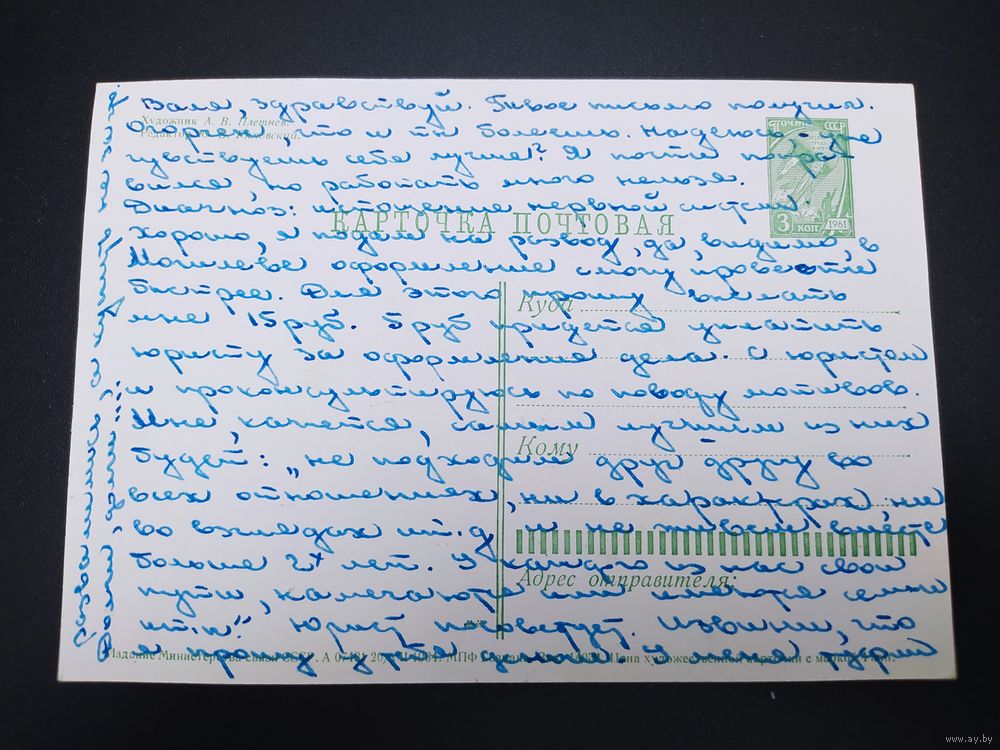 Валя, здравствуй. Твое письмо получил.
Огорчен, что и ты болеешь. Надеюсь, уже
чувствуешь себя лучше? Я почти попра-
вился, но работать много нельзя.
Диагноз: истощение нервной системы.
Хорошо, я подам на развод, да, видимо, в
Могилеве оформление смогу провести
быстрее. Для этого прошу выслать
мне 15 руб. 5 руб придется уплатить
юристу за оформление дела. С юристом
и проконсультируюсь по поводу мотивов.
Мне, кажется, самым лучшим из них
будет: „не подходим друг другу во
всех отношениях, ни в характерах, ни
во взглядах и т.д и не живем вместе
больше 2х лет. У каждого из нас свои
пути,
и т.п." Юрист посоветует. Извини, что
я прошу у тебя деньги. У меня
Художник А. В. Плетнев.
ПОЧТА СССР
3 коп
1961
КАРТОЧКА ПОЧТОВАЯ
Куда
Кому
Адрес отправителя:
Издание Министерства связи СССР.
художественной карточки с маркой
www.ay.by